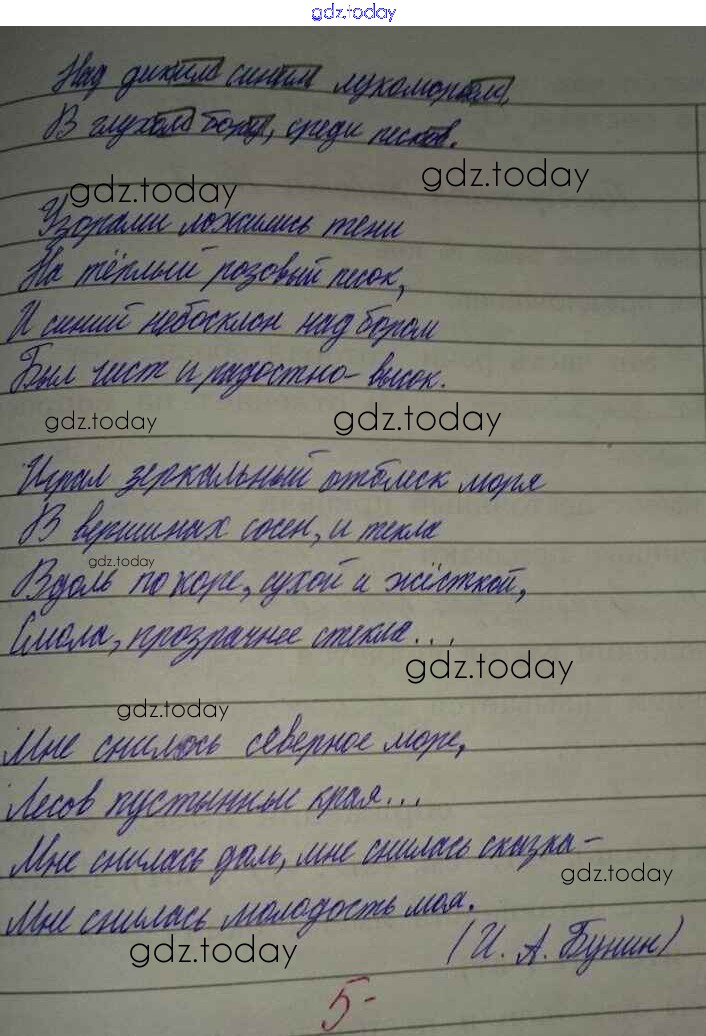 gdz.today
Над диким синим лукоморьем,
В глухом бору, среди песков.
gdz.today
gdz.today
Узорами ложились тени
На тёплый розовый песок,
И синий небосклон над бором
Был чист и радостно-высок.
gdz.today
gdz.today
Играл зеркальный отблеск моря
В вершинах сосен, и текла
gdz.today
Вдоль по коре, сухой и жёсткой,
Смола, прозрачнее стекла...
gdz.today
gdz.today
Мне снилось северное море,
Лесов пустынные края...
Мне снилась даль, мне снилась сказка-
gdz.today
Мне снилась молодость моя.
(И. А. Бунин)
gdz.today
5-